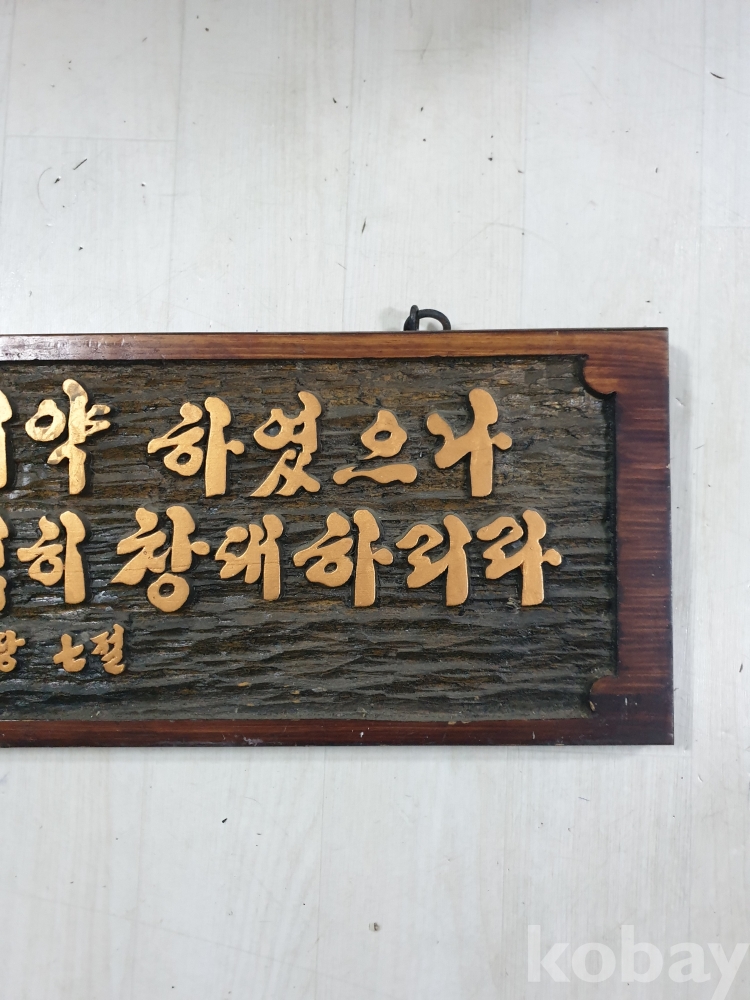 약 하였으나
히 창대하리라
七절
kobay